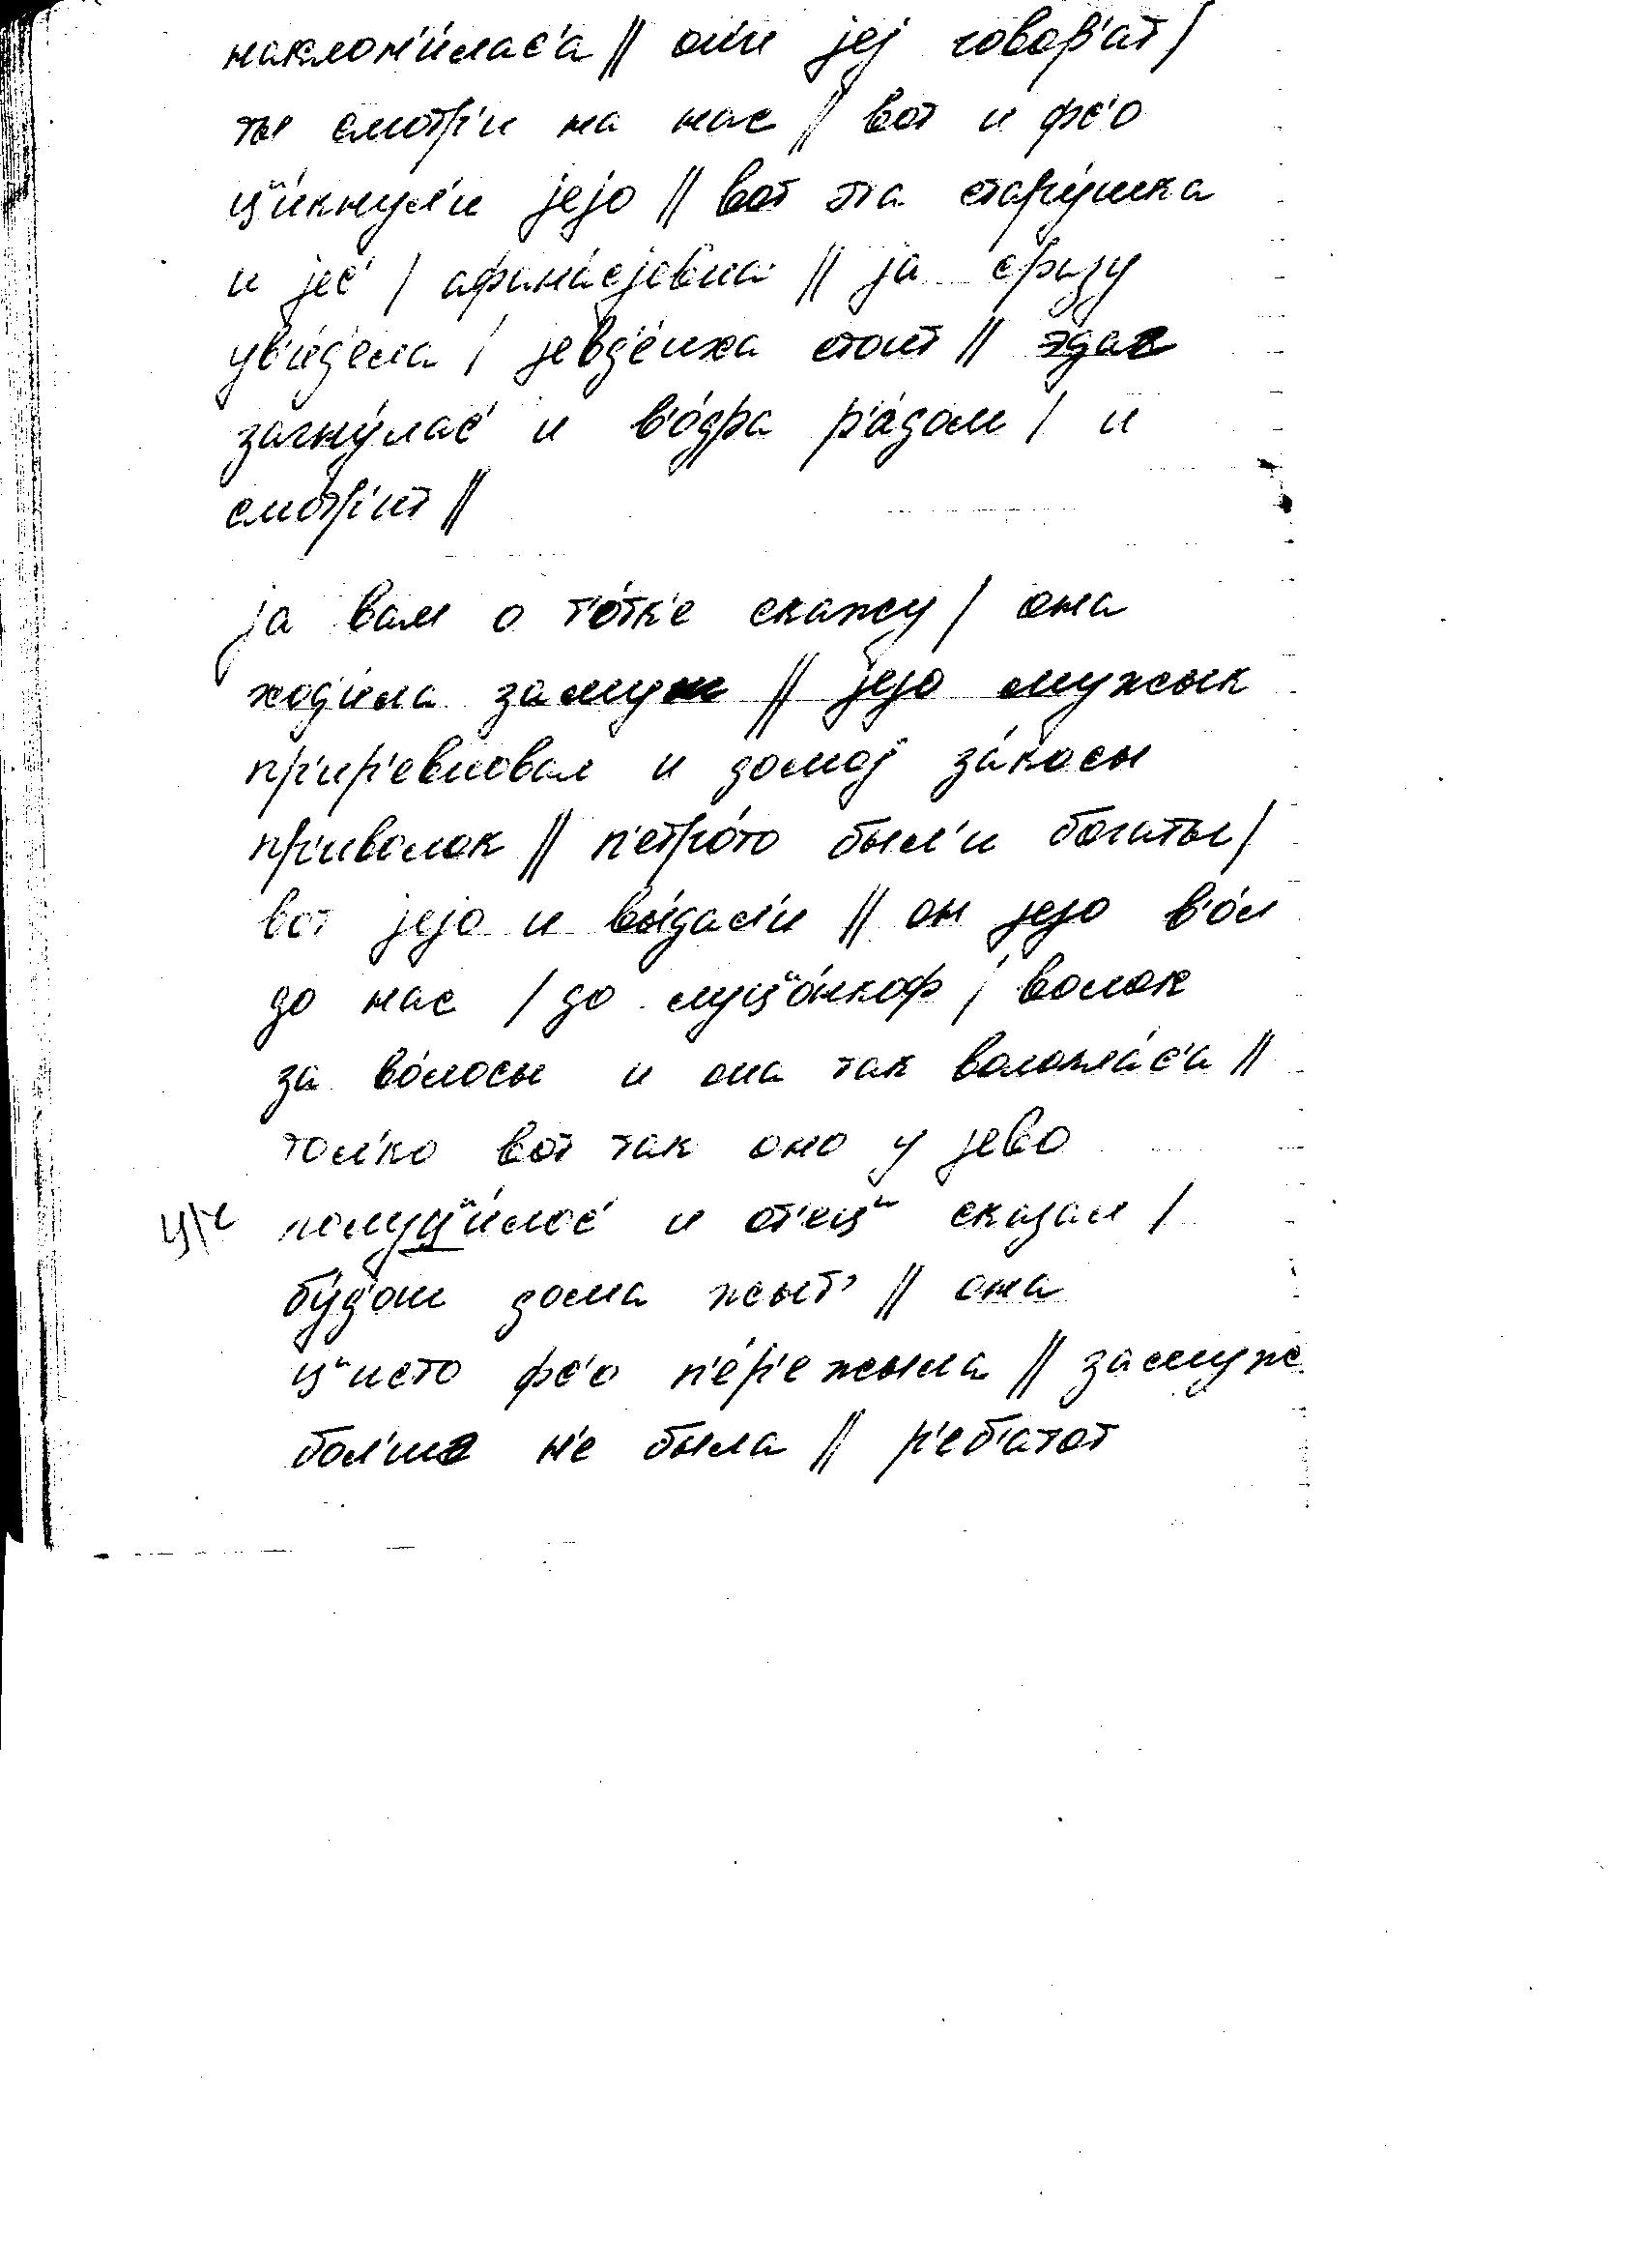 наклон'и́лас'а // он'и jеj говор'ат /
ты смотр'и на нас // вот и фс'о
цᶣи́кнул'и jejо // вот эта стару́шка
и jес' / афана́сjевна // jа сразу
ув'и́д'ела / jевд'е́иха стоит // эдак
загну́лас' и в'о́дра р'а́дом / и
смотр'ит //
jа вам о т'о́тк'е скажу / она
ход'и́ла замуж // jejо мужык
пр'ир'евновал и домоj за́косы
пр'иволок // п'етро́то был'и богаты /
вот jejо и вы́дал'и // он jejо в'о́л
до нас / до луцᶣо́нкоф / волок
за во́лосы и она так воложла́с'а //
тол'ко вот так оно у jево
ц/ч получᶣи́лос' и от'ецᶣ сказал /
бу́д'ош дома жыт' // она
цᶣисто фс'о п'е́р'ежыла // замуж
бол'ше н'е была // р'еб'атот